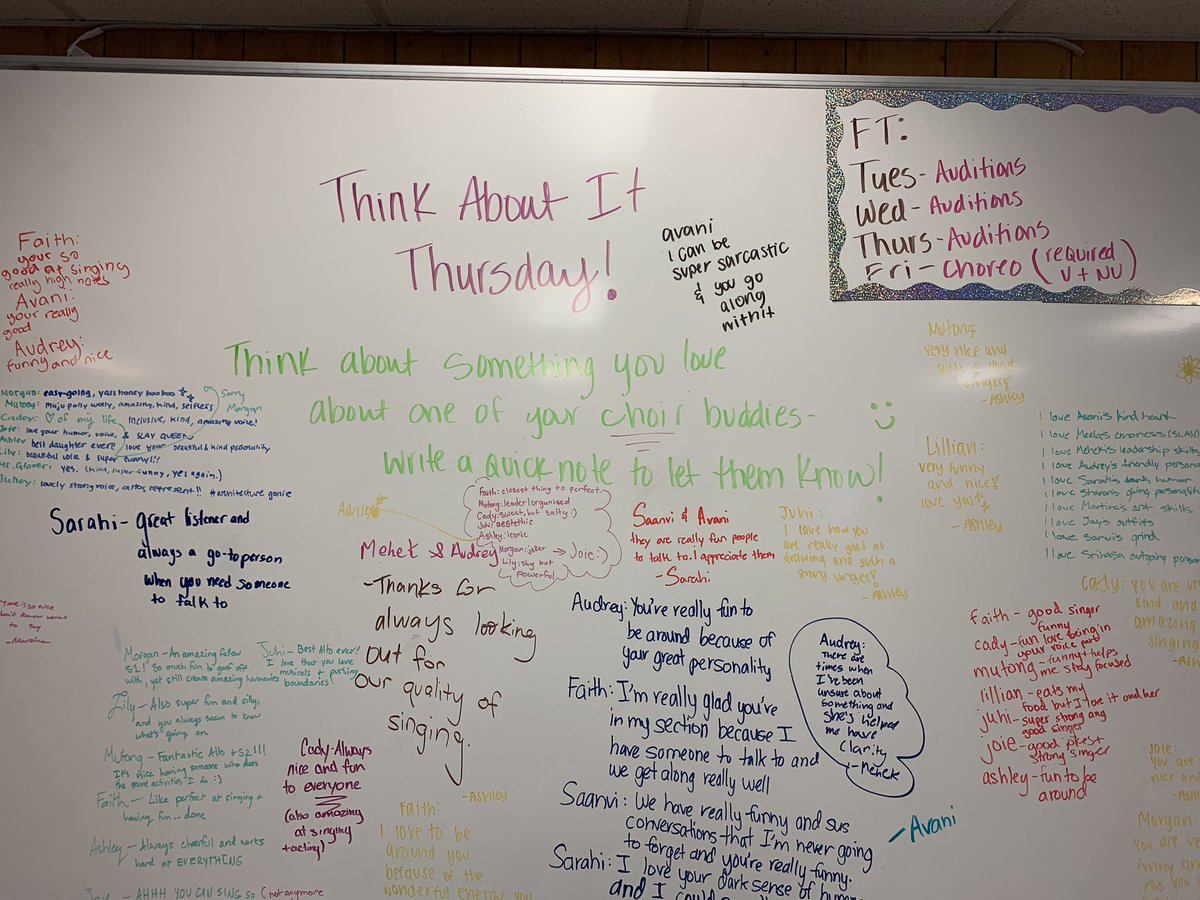 Think About It
Thursday!
Think about something you love
about one of your choir buddies-
write a quick note to let them know!
FT:
Tues- Auditions
Wed- Auditions
Thurs- Auditions
Fri- Choreo (required V + NV)
avani
i can be
super sarcastic
& you go
along
withit
Faith:
your so
good at singing
really high notes
Avani:
your really
good
Audrey:
funny and nice
Morgan: easy-going, yass honey boo boo
Sorry
Morgan
inclusive, kind, amazing voice!
love your humor, voice, & SLAY QUEEN
Ashley best daughter ever!! love your beautiful & kind personality
Lily: beautiful voice & super funny!!
yes. (kind, super-funny, yes again.)
lovely strong voice, altos represent!! #architecture
Sarahi- great listener and
always a go-to person
when you need someone
to talk to
Ashley
Faith: closest thing to perfect.
Mutong: leader/organised
Cady: sweet, but salty :)
Juhi: aestethic
Ashley: iconic
Morgan: joker → Joie :)
Lily: shy but
powerful
Mehek & Audrey
-Thanks for
always looking
out for
our quality of
singing.
Saanvi & Avani
they are really fun people
to talk to. I appreciate them
-Sarahi
Juhi:
I love how you
are really good at
drawing and such a
strong singer!
-Ashley
Mutong:
very nice and
such a kind
singer!
-Ashley
Lillian:
very funny
and nice!
love you
-Ashley
I love Avani's kind heart
I love Mehek's leadership skills
I love Audrey's friendly persona
I love Sarahi's dark humor
I love Sharon's giving personality
I love Martina's art skills
I love Jay's outfits
I love Sanvi's grind
I love Srihasa outgoing person
Cady: you are v
kind and
amazing
singing
-Ash
to say
Morgan- An amazing fellow
S1! So much fun to goof off
with, yet still create amazing harmonies
Juhi- Best Alto ever!
I love that you love
musicals + pushing
boundaries!
Lily- Also super fun and silly,
and you always seem to know
what's going on.
Mutong- Fantastic Alto +S2!!!
It's nice having someone who does
the same activities I do :)
Faith- Like perfect at singing +
having fun... done
Ashley- Always cheerful and works
hard at EVERYTHING
Joie- AHHH YOU CAN SING SO (not anymore
Cady: Always
nice and fun
to everyone
(also amazing
at singing
+acting)
-Ashley
Faith:
I love to be
around you
because of the
wonderful energy you
Audrey: You're really fun to
be around because of
your great personality
Faith: I'm really glad you're
in my section because I
have someone to talk to and
we get along really well
Saanvi: We have really funny and sus
conversations that I'm never going
to forget and you're really funny.
Sarahi: I love your dark sense of humor
and I
-Avani
Audrey:
There are
times when
I've been
unsure about
something and
she's helped
me have
clarity
-Mehek
faith - good singer
funny
cady - fun love being in
your voice part
mutong - funny + helps
me stay focused
lillian - eats my
food but I love it and her
juhi - super strong and
good singer
joie - good jokes +
strong singer
ashley - fun to be
around
Joie:
You are
nice and
Morgan:
You are ve
funny an
plus you